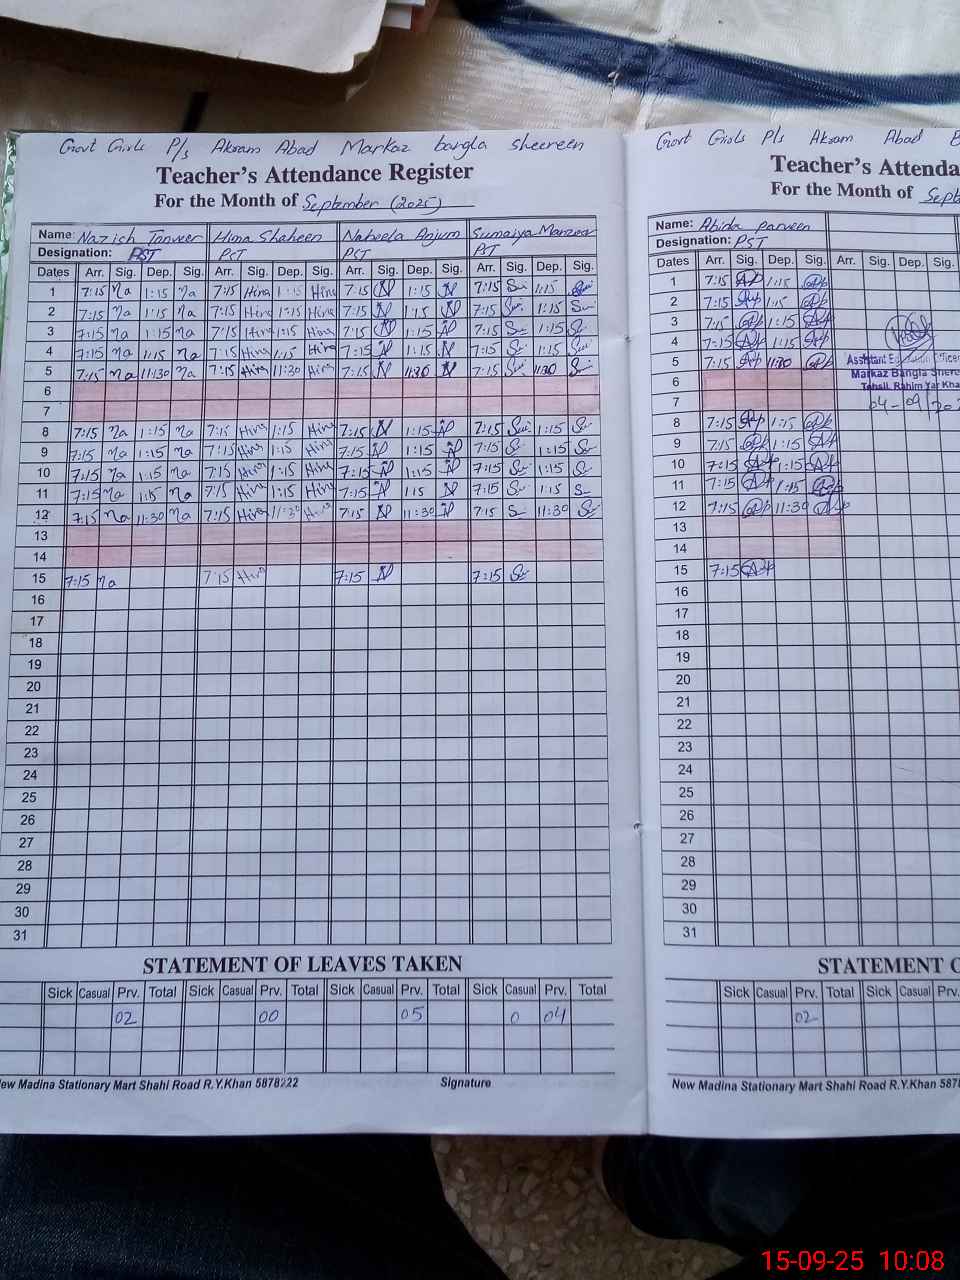 Govt Girls P/s Akram Abad Markaz bangla sheereen
Teacher's Attendance Register
For the Month of September (2025)
Name: Nazish Tanveer Hina Shaheen Nabeela Anjum Sumaiya Manzoor
Designation: PST PST PST PST
Dates Arr. Sig. Dep. Sig. Arr. Sig. Dep. Sig. Arr. Sig. Dep. Sig. Arr. Sig. Dep. Sig.
1 7:15 Na 1:15 Na 7:15 Hina 1:15 Hina 7:15 N 1:15 N 7:15 Su 1:15
2 7:15 Na 1:15 Na 7:15 Hina 1:15 Hina 7:15 N 1:15 N 7:15 Su 1:15 Su
3 7:15 Na 1:15 Na 7:15 Hina 1:15 Hina 7:15 N 1:15 N 7:15 Su 1:15 Su
4 7:15 Na 1:15 Na 7:15 Hina 1:15 Hina 7:15 N 1:15 N 7:15 Su 1:15 Su
5 7:15 Na 11:30 Na 7:15 Hina 11:30 Hina 7:15 N 11:30 N 7:15 Su 11:30 Su
6
7
8 7:15 Na 1:15 Na 7:15 Hina 1:15 Hina 7:15 N 1:15 N 7:15 Su 1:15 Su
9 7:15 Na 1:15 Na 7:15 Hina 1:15 Hina 7:15 N 1:15 N 7:15 Su 1:15 Su
10 7:15 Na 1:15 Na 7:15 Hina 1:15 Hina 7:15 N 1:15 N 7:15 Su 1:15 Su
11 7:15 Na 1:15 Na 7:15 Hina 1:15 Hina 7:15 N 1:15 N 7:15 Su 1:15 Su
12 7:15 Na 11:30 Na 7:15 Hina 11:30 Hina 7:15 N 11:30 N 7:15 Su 11:30 Su
13
14
15 7:15 Na 7:15 Hina 7:15 N 7:15 Su
16
17
18
19
20
21
22
23
24
25
26
27
28
29
30
31
STATEMENT OF LEAVES TAKEN
Sick Casual Prv. Total Sick Casual Prv. Total Sick Casual Prv. Total Sick Casual Prv. Total
02 00 05 0 04
New Madina Stationary Mart Shahi Road R.Y.Khan 5878222 Signature
Govt Girls P/s Akram Abad B
Teacher's Attenda
For the Month of Sept
Name: Abida Parveen
Designation: PST
Dates Arr. Sig. Dep. Sig. Arr. Sig. Dep. Sig.
1 7:15 1:15
2 7:15 1:15
3 7:15 1:15
4 7:15 1:15
5 7:15 11:30
6
7
8 7:15 1:15
9 7:15 1:15
10 7:15 1:15
11 7:15 1:15
12 7:15 11:30
13
14
15 7:15
16
17
18
19
20
21
22
23
24
25
26
27
28
29
30
31
Assistant Education Officer
Markaz Bangla Shere
Tehsil Rahim Yar Kha
04-09-202
STATEMENT O
Sick Casual Prv. Total Sick Casual Prv.
02
New Madina Stationary Mart Shahi Road R.Y.Khan 587
15-09-25 10:08